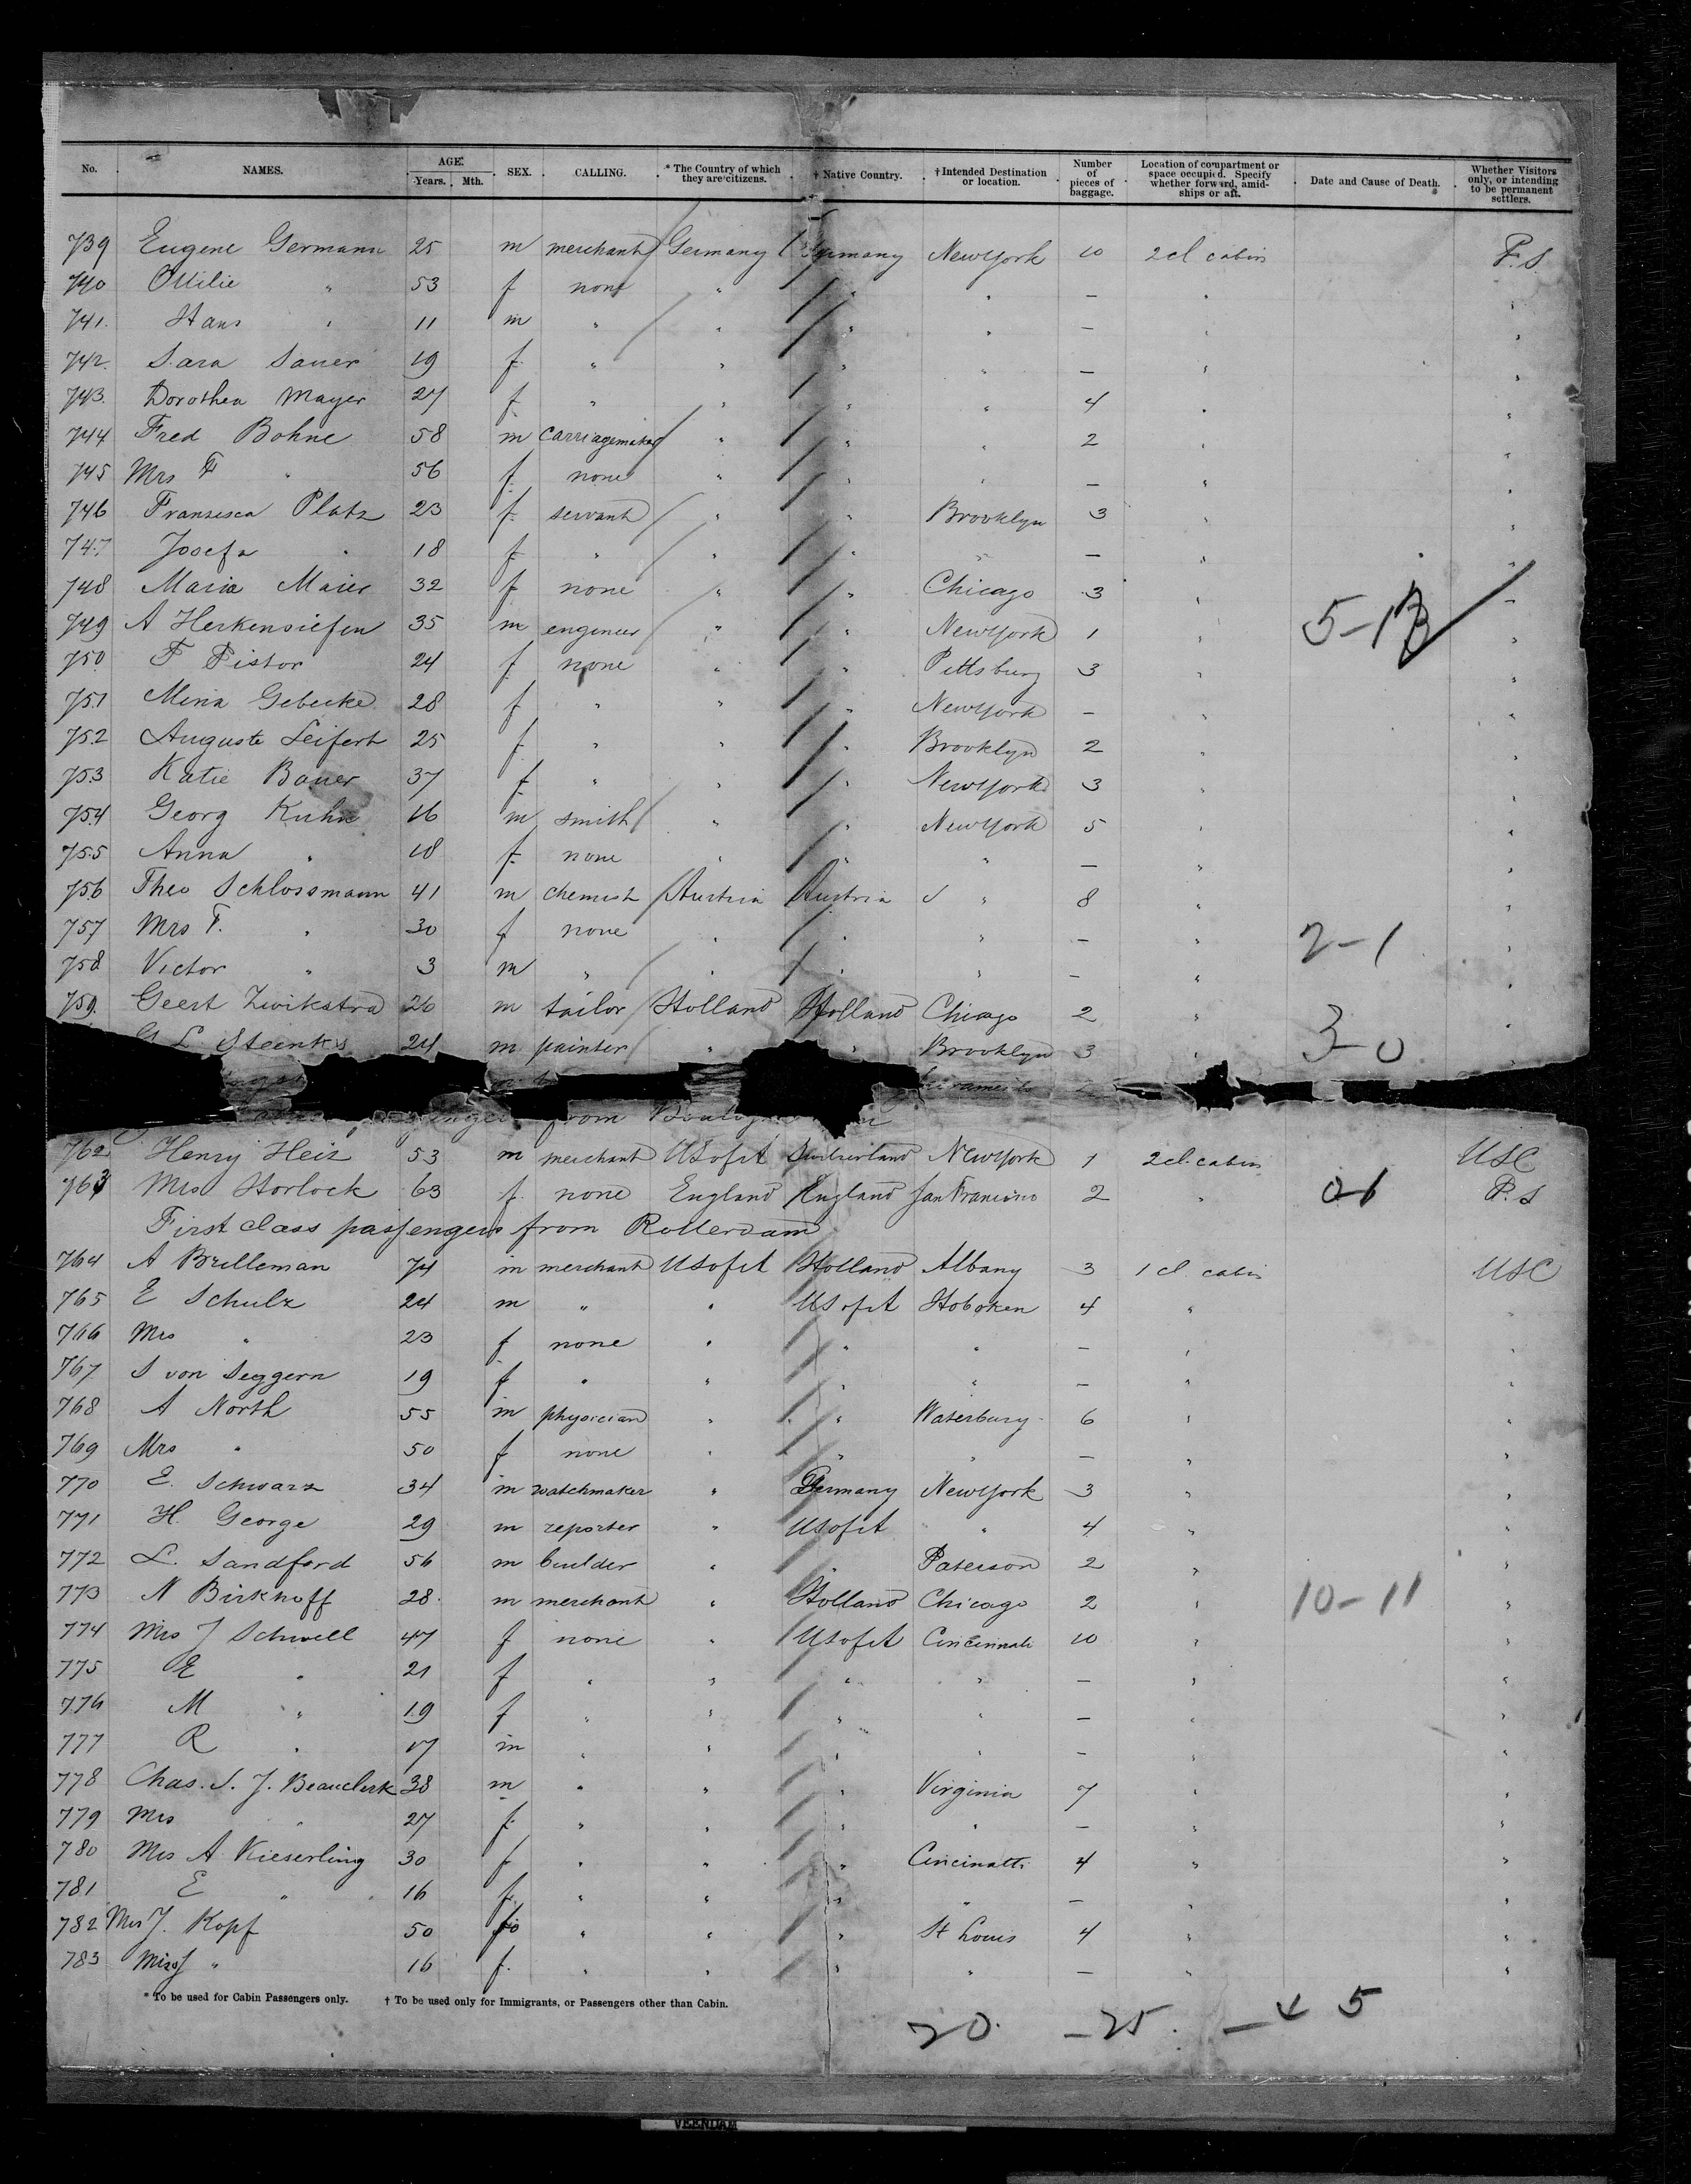 No. NAMES. AGE. Years. Mth. SEX. CALLING. * The Country of which they are citizens. † Native Country. † Intended Destination or location. Number of pieces of baggage. Location of compartment or space occupied. Specify whether forward, amidships or aft. Date and Cause of Death. Whether Visitors only, or intending to be permanent settlers.
739 Eugene Germann 25 m merchant Germany Germany New York 10 2cl cabin P.S.
740 Ottilie " 53 f none " " " — " "
741. Hans " 11 m " " " " — " "
742. Sara Sauer 19 f. " " " " — " "
743. Dorothea Mayer 27 f. " " " " 4 " "
744 Fred Bohne 58 m carriagemaker " " " 2 " "
745 Mrs F " 56 f. none " " " — " "
746 Fransisca Platz 23 f. servant " " Brooklyn 3 " "
747 Josefa " 18 f " " " " — " "
748 Maria Maier 32 f none " " Chicago 3 " "
749 A Herkensiefen 35 m engineer " " New York 1 " 5-13 "
750 F Pistor 24 f. none " " Pittsburg 3 " "
751 Mina Gebecke 28 f " " " New York — " "
752 Auguste Seifert 25 f. " " " Brooklyn 2 " "
753 Katie Bauer 37 f " " " New York 3 " "
754 Georg Kuhn 16 m smith " " New York 5 " "
755 Anna " 18 f. none " " " — " "
756 Theo Schlossmann 41 m chemist Austria Austria " 8 " "
757 Mrs T. " 30 f none " " " — " 2-1 "
758 Victor " 3 m " " " " — " "
759. Geert Zwikstra 26 m tailor Holland Holland Chicago 2 " "
G L Steenks 24 m painter " " Brooklyn 3 " 3-0 "
from
762 Henry Heiz 53 m merchant US of A Switzerland New York 1 2cl. cabin USC
763 Mrs Horlock 63 f. none England England San Francisco 2 " 0-1 P.S
First class passengers from Rotterdam
764 A Brilleman 74 m merchant US of A Holland Albany 3 1 cl. cabin USC
765 E Schulz 24 m " " US of A Hoboken 4 " "
766 Mrs " 23 f none " " " — " "
767 S von Seggern 19 f " " " " — " "
768 A North 55 m physician " " Waterbury 6 " "
769 Mrs " 50 f none " " " — " "
770 E. Schwarz 34 m watchmaker " Germany New York 3 " "
771 H. George 29 m reporter " US of A " 4 " "
772 L. Sandford 56 m builder " " Paterson 2 " "
773 N Birkhoff 28. m merchant " Holland Chicago 2 " 10-11 "
774 Mrs J Schwell 47 f none " US of A Cincinnati 10 " "
775 E " 21 f " " " " — " "
776 M " 19 f " " " " — " "
777 R " 17 m " " " " — " "
778 Chas. S. J. Beauclerk 38 m " " " Virginia 7 " "
779 Mrs " 27 f. " " " " — " "
780 Mrs A Kieserling 30 f " " " Cincinatti 4 " "
781 E " 16 f. " " " " — " "
782 Mrs J. Kopf 50 f " " " St Louis 4 " "
783 Miss J " 16 f. " " " " — " "
* To be used for Cabin Passengers only. † To be used only for Immigrants, or Passengers other than Cabin.
20. — 25. — 45
VEENDAM